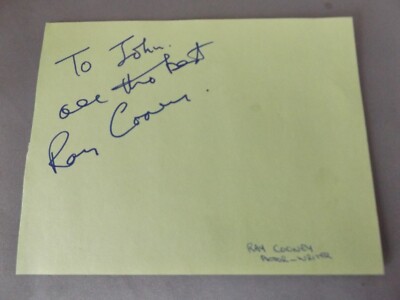 To John.
all the best
Ray Cooney.
RAY COONEY
ACTOR - WRITER